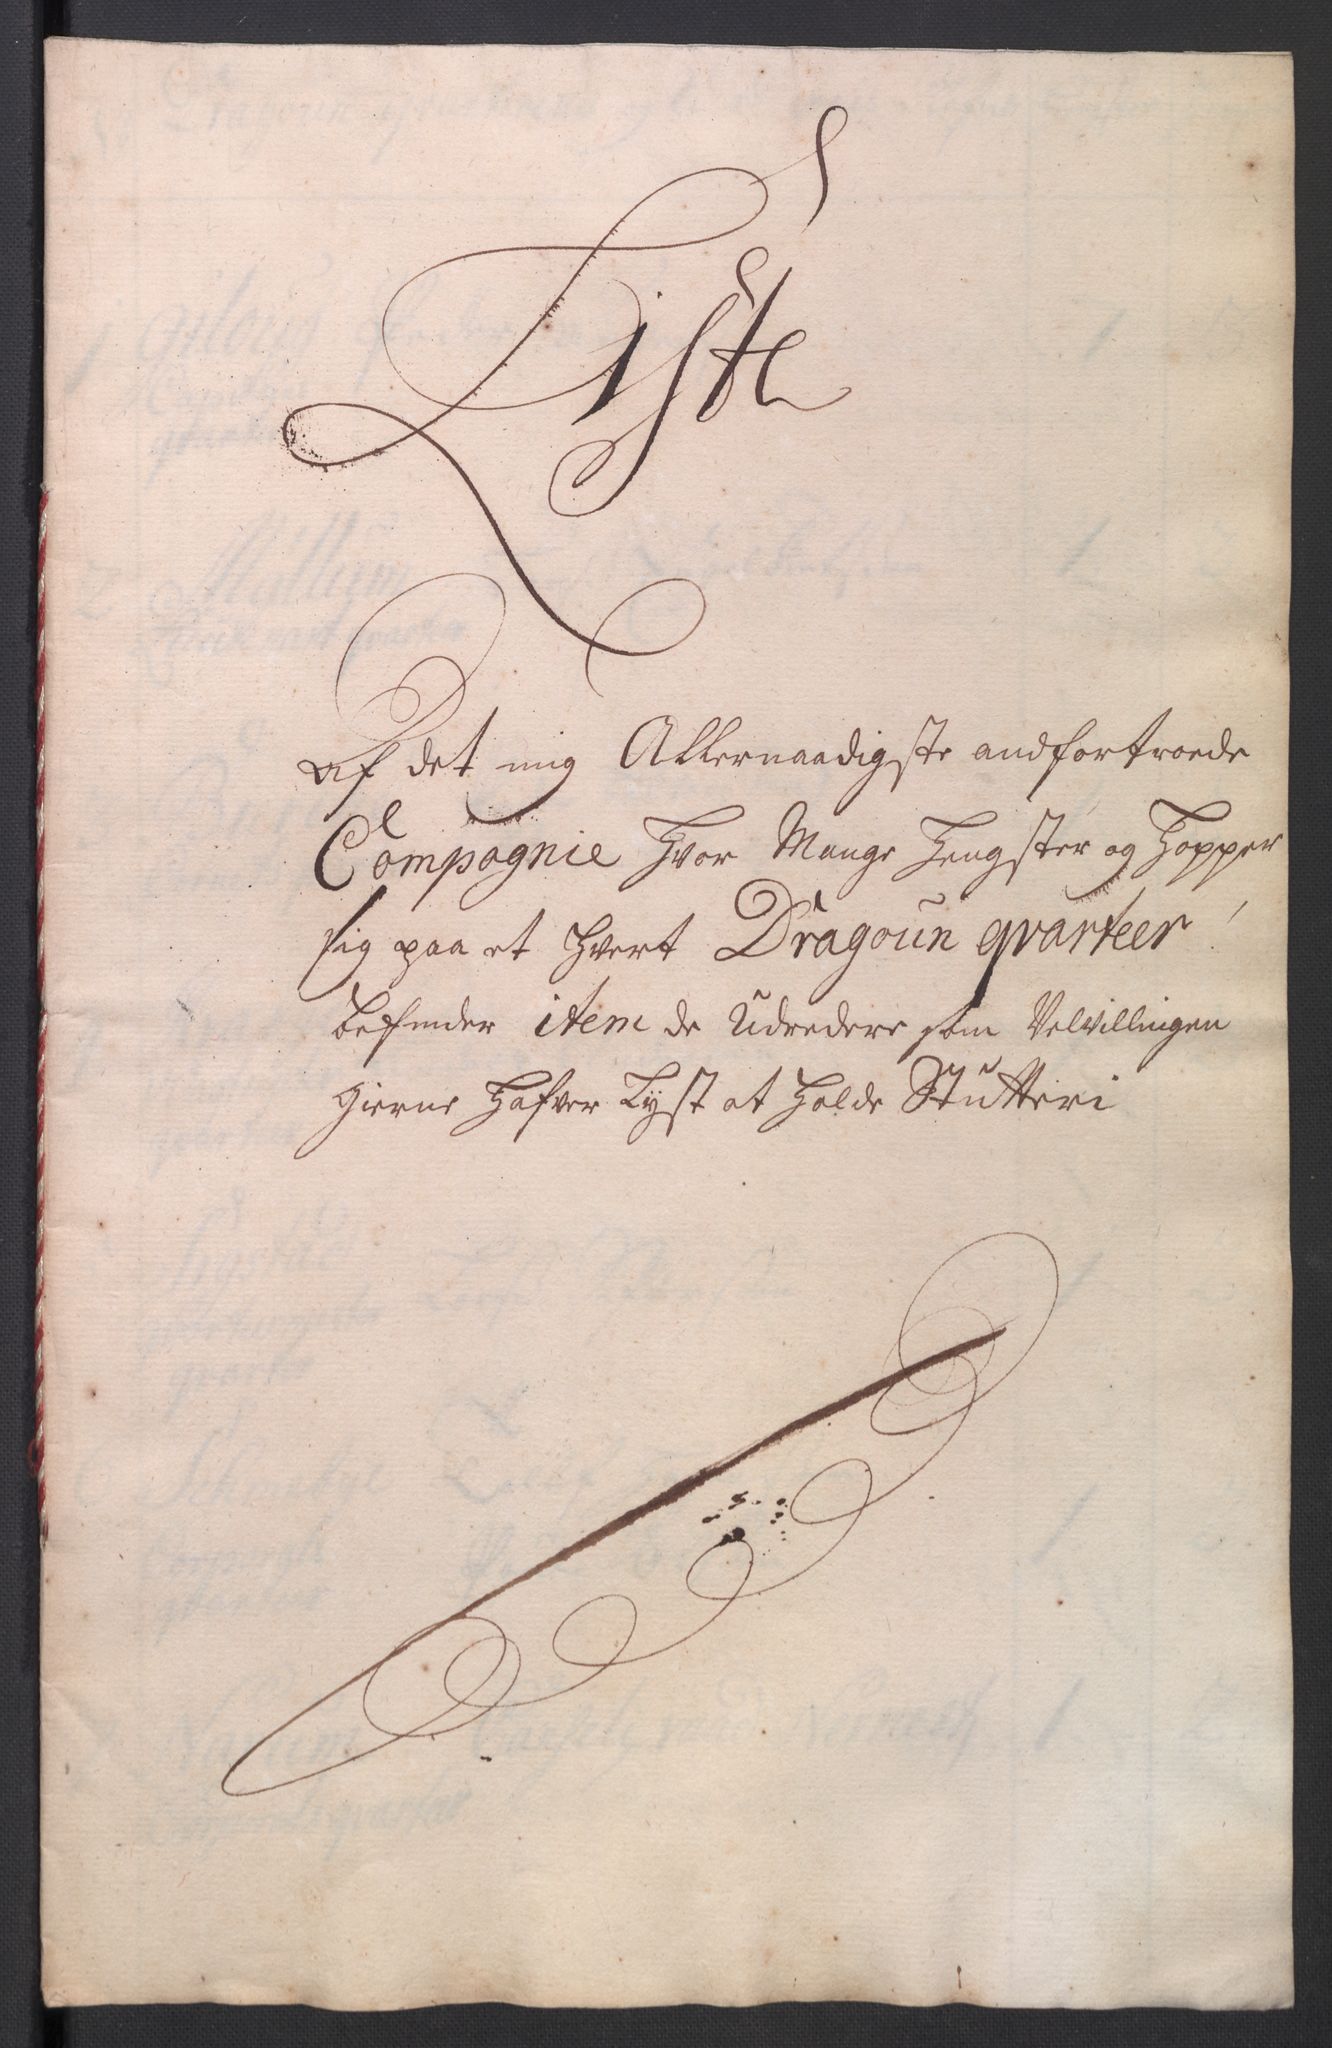 Liste
af det mig Allernaadigste andfortroede
Compagnie Hvor Mange Hengster og Hopper
sig paa et Hvert Dragoun qvarteer
befinder item de Udredere som Velvillingen
gierne Hafver Lyst at Holde Stutteri